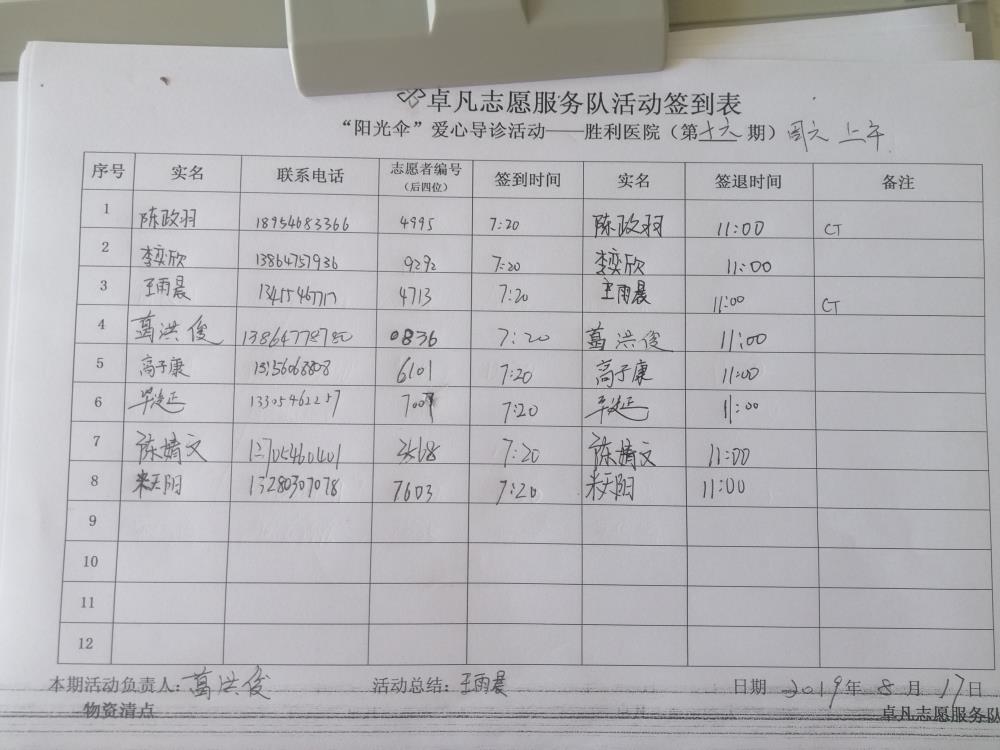 卓凡志愿服务队活动签到表
“阳光伞”爱心导诊活动——胜利医院（第十六期）周六 上午
序号 实名 联系电话 志愿者编号（后四位） 签到时间 实名 签退时间 备注
1 陈政羽 18954683366 4995 7:20 陈政羽 11:00 CT
2 李奕欣 13864757936 9292 7:20 李奕欣 11:00
3 王雨晨 4713 7:20 王雨晨 11:00 CT
4 葛洪俊 13864778780 0836 7:20 葛洪俊 11:00
5 高子康 6101 7:20 高子康 11:00
6 13305462257 7:20 11:00
7 陈婧文 7:20 陈婧文 11:00
8 米天阳 15280307078 7603 7:20 米天阳 11:00
9
10
11
12
本期活动负责人：葛洪俊 活动总结：王雨晨 日期 2019年8月17日
物资清点 卓凡志愿服务队